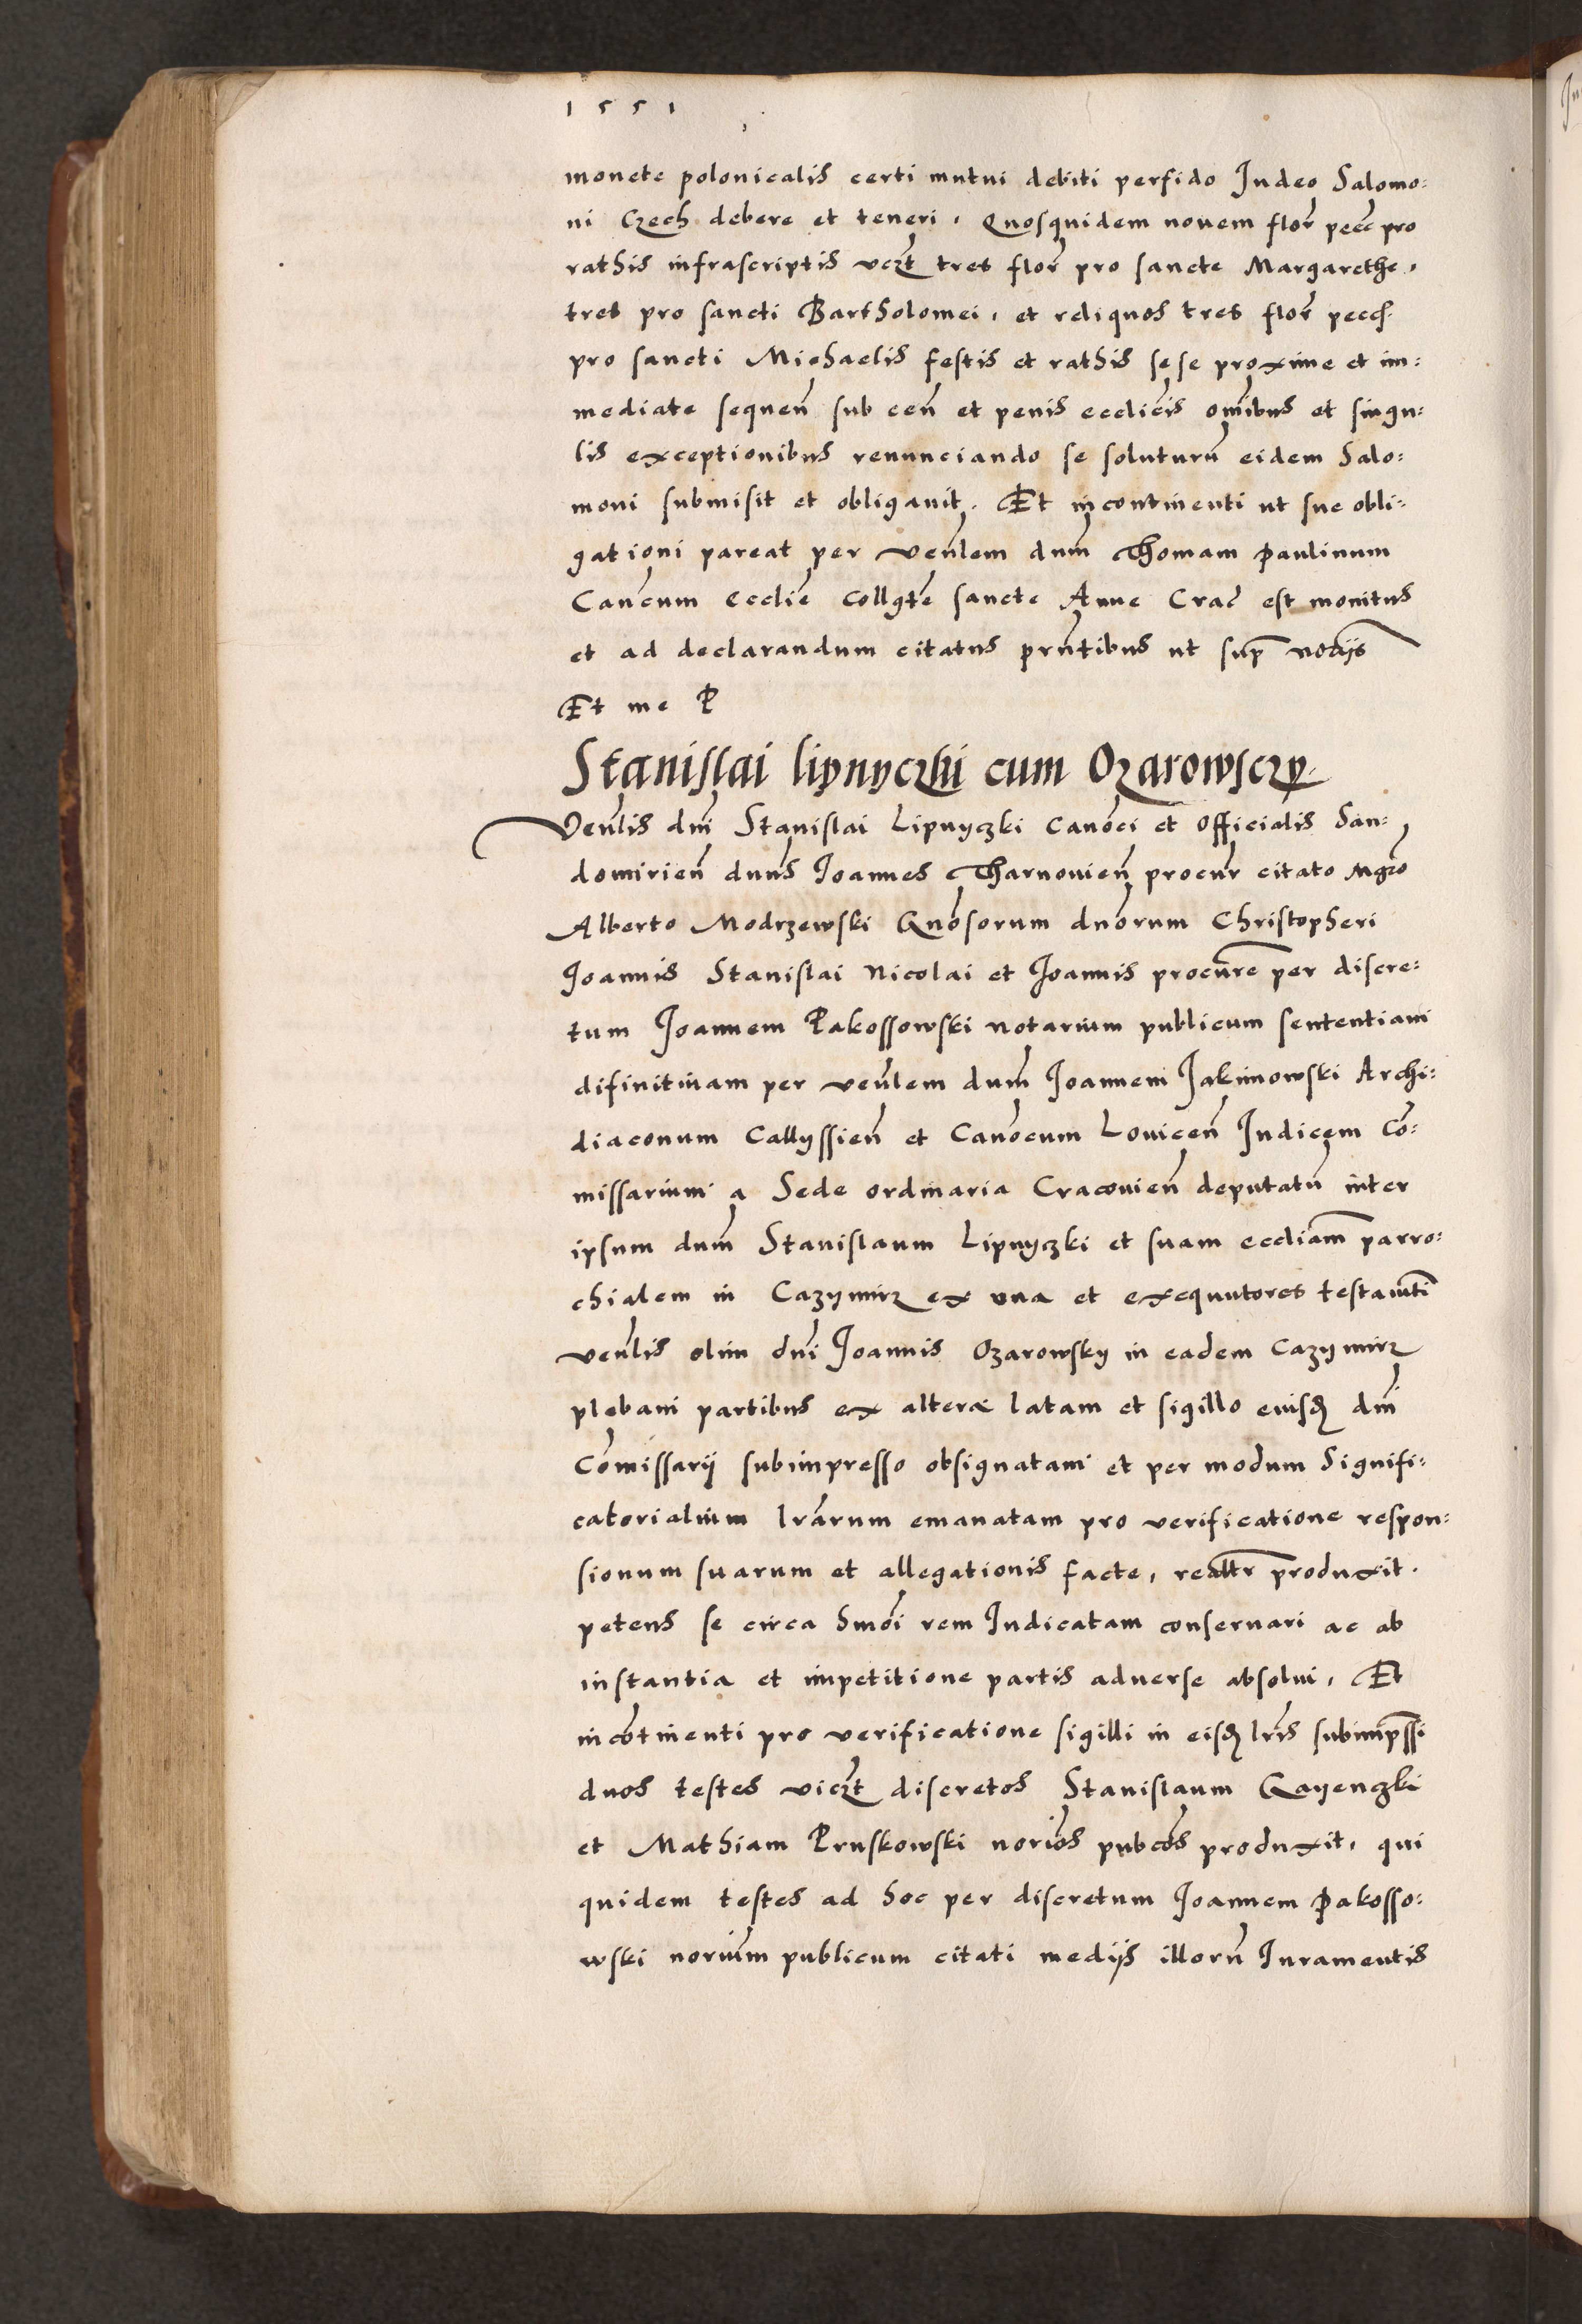 1551
monete polonicalis certi mutui debiti perfido Judeo Salomo:
ni Czech debere et teneri, Quosquidem nouem flor̃ pecc̃ pro
rathis infrascriptis vczt tres flor̃ pro sancte Margarethe,
tres pro sancti Bartholomei, et reliquos tres flor̃ pecc̃
pro sancti Michaelis festis et rathis sese proxime et im:
mediate sequen̄ sub cen̄ et penis ecclicis om̄ibus et singu:
lis exceptionibus renunciando se soluturū eidem Salo:
moni submisit et obligauit. Et incontinenti ut sue obli:
gationi pareat per veñlem dum̄ Thomam Paulinum
Cañcum Ecclie Collgte sancte Anne Crac̃ est monitus
et ad declarandum citatus pr̃ntibus ut sup̄ notijs
Et me P
Stanislai lipnyczki cum Ozarowsczy
Veñlis dñi Stanislai Lipnyczki Canoci et Officialis San:
domirien̄ dnus Ioannes Tharnouien̄ procur̃ citato Mgro
Alberto Modrzewski Gnosorum dnorum Christopheri
Joannis Stanislai Nicolai et Joannis procure per discre:
tum Joannem Pakossowski notarium publicum sententiam
difinitiuam per veñlem dum̄ Joannem Jakimowski Archi:
diaconum Callyssien̄ et Canocum Louicen̄ Judicem Cō:
missarium a Sede ordinaria Cracouien̄ deputatū inter
ipsum dum̄ Stanislaum Lipnyczki et suam eccliam parro:
chialem in Cazymirz ex vna et exequutores testamti
veñlis olim dñi Joannis Ozarowsky in eadem Cazymirz
plebani partibus ex altera latam et sigillo eiusd dñi
Cōmissarij subimpresso obsignatam et per modum Signifi:
catorialium lrarum emanatam pro verificatione respon:
sionum suarum et allegationis facte, realtr produxit.
petens se circa hmōi rem Judicatam conseruari ac ab
instantia et impetitione partis aduerse absolui, Et
incōtinenti pro verificatione sigilli in eisd lris subimpssi
duos testes viczt discretos Stanislaum Gayenczki
et Mathiam Pruskowski norios pubcos produxit, qui
quidem testes ad hoc per discretum Joannem Pakosso:
wski norium publicum citati medijs illorū Juramentis